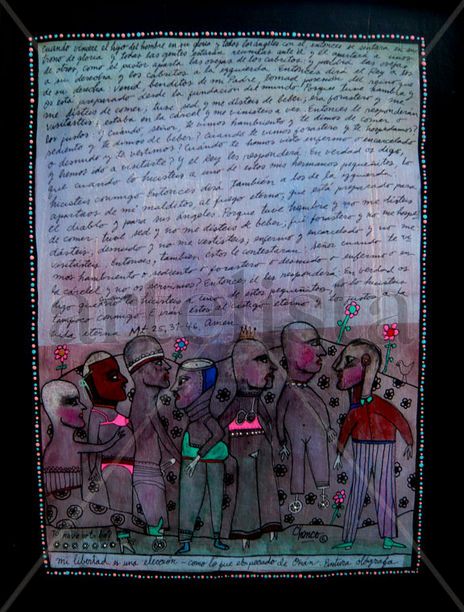 Cuando viniere el hijo del hombre en su gloria y todos los angeles con el entonces se sentara en su
trono de gloria y todas las gentes estarán reunidas ante el y el apartará unos
de otros, como el pastor aparta las ovejas de los cabritos, y pondrá las ovejas
a su derecha y los cabritos a la izquierda. Entonces dirá el Rey a los
de su derecha: Venid, benditos de mi Padre, tomad posesión del reino que
os está preparado desde la fundación del mundo. Porque tuve hambre y
me disteis de comer, tuve sed y me disteis de beber, era forastero y me
visitasteis, estaba en la cárcel y me vinisteis a ver. Entonces le responderán
los justos: ¿Cuándo, señor, te vimos hambriento y te dimos de comer o
sediento y te dimos de beber? ¿Cuándo te vimos forastero y te hospedamos?
o desnudo y te vestimos? ¿Cuándo te hemos visto enfermo o encarcelado
y hemos ido a visitarte? Y el Rey les responderá: En verdad os digo,
que cuando lo hicisteis a uno de estos mis hermanos pequeñitos, lo
hicisteis conmigo. Entonces dirá también a los de la izquierda:
apartaos de mi malditos al fuego eterno, que está preparado para
el diablo y para sus ángeles. Porque tuve hambre y no me disteis
de comer, tuve sed y no me disteis de beber, fui forastero y no me
dásteis, desnudo y no me vestisteis, enfermo y encarcelado y no me
visitasteis. Entonces, también, éstos le contestarán: señor cuando te
hambriento o sediento o forastero o desnudo o enfermo o en
la cárcel y no os servimos? Entonces el les responderá: En verdad os
digo que cuando no lo hicisteis a uno de estos pequeñitos, no lo hicisteis
tampoco conmigo. E irán éstos al castigo eterno y los justos a la
vida eterna Mt 25, 31-46 Amen
Chanco ©
mi libertad es una elección - como lo que el pecado de Onán. Pintura ológrafa